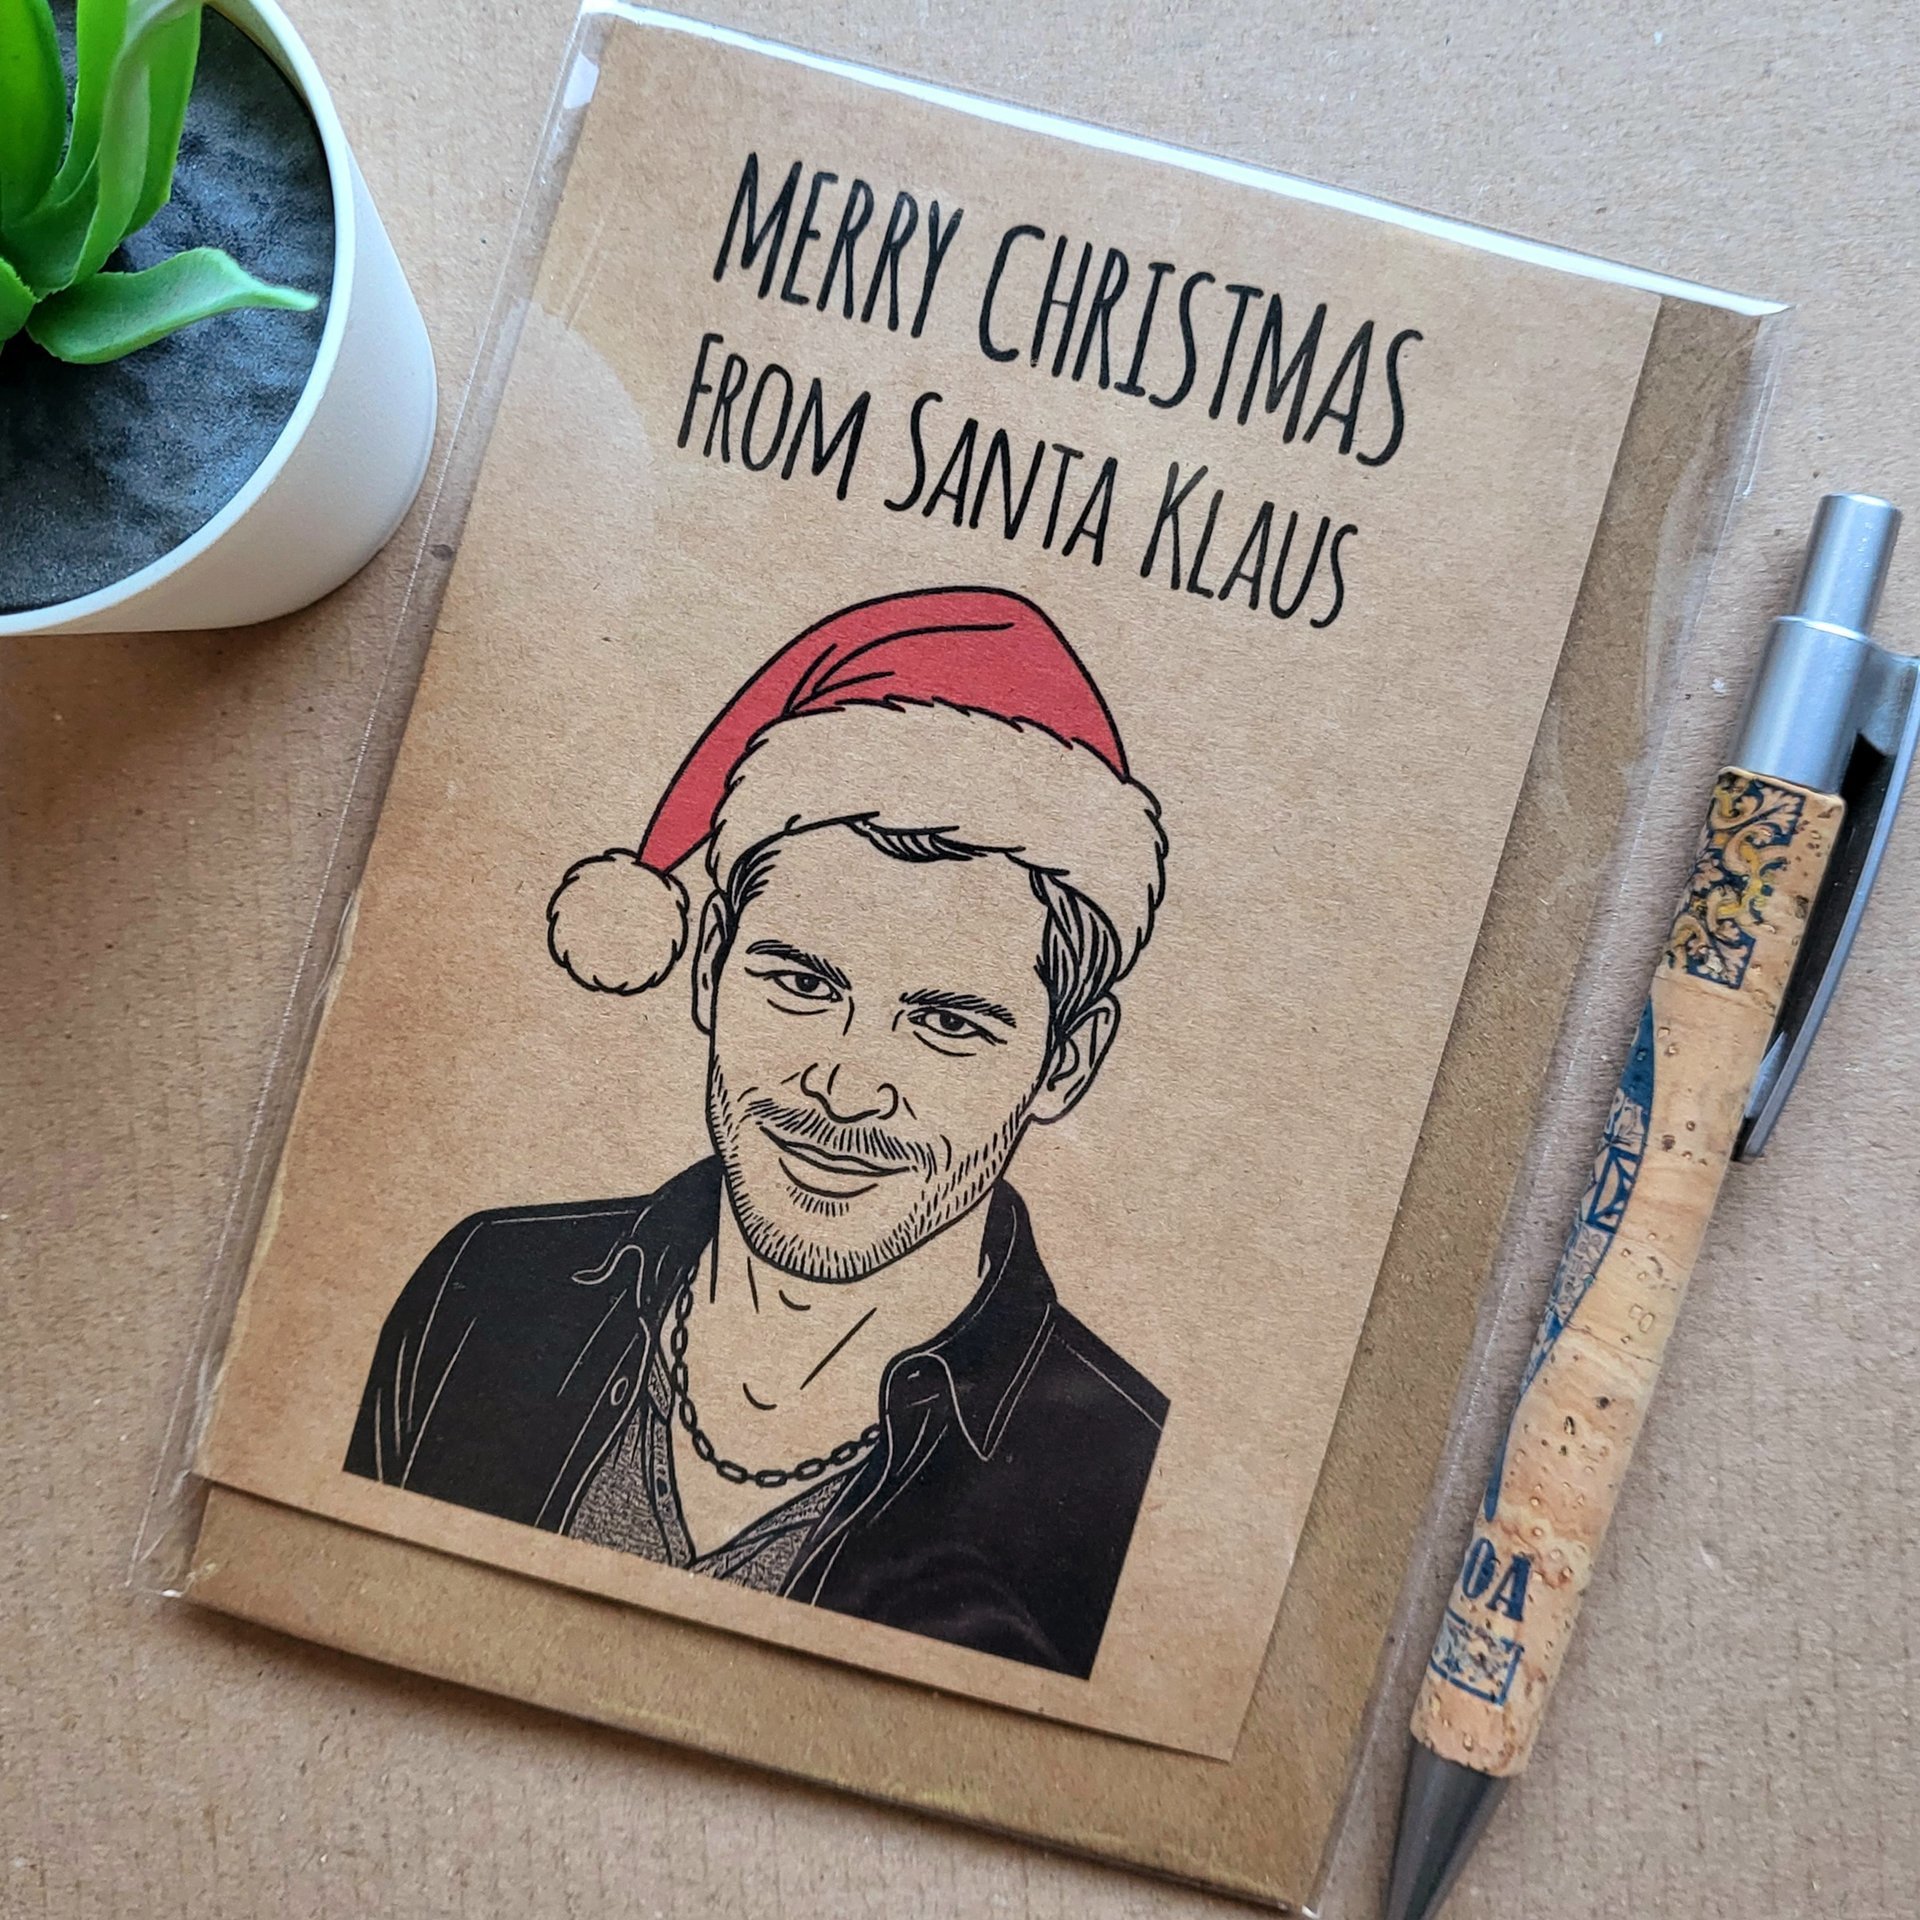 MERRY CHRISTMAS
FROM SANTA KLAUS
OA